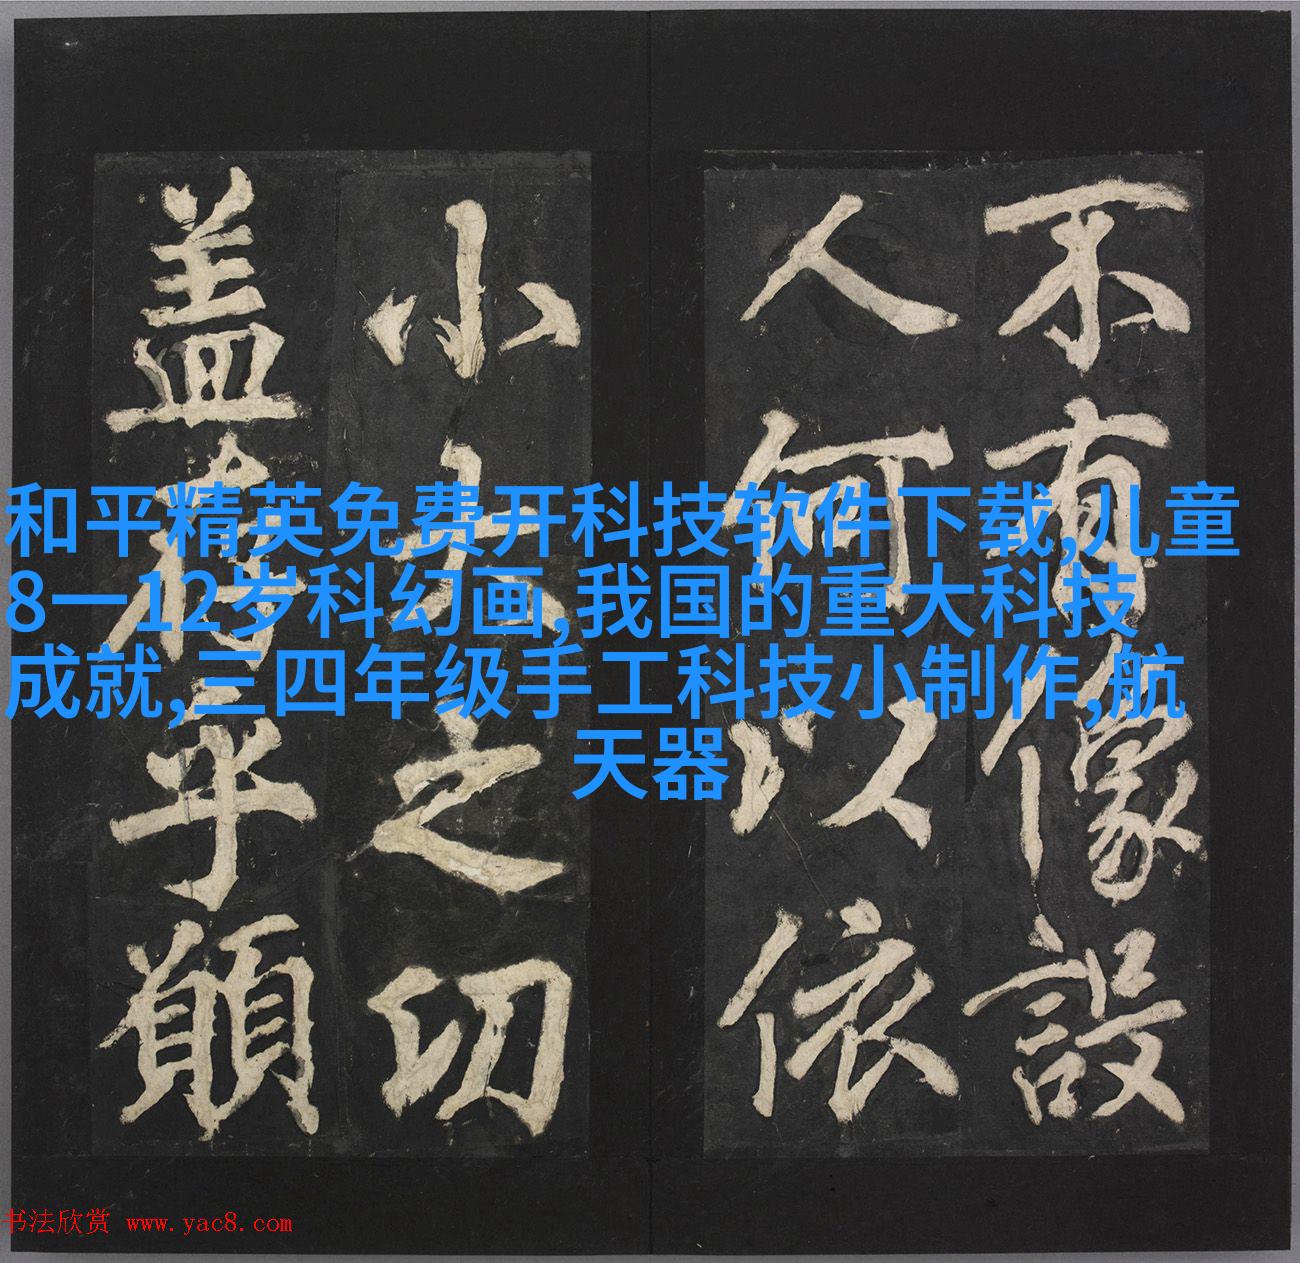 不有像設
人何以依
小 之切
盖 乎願
和平精英免费开科技软件下载,儿童
8一12岁科幻画,我国的重大科技
成就,三四年级手工科技小制作,航
天器
书法欣赏 www.yac8.com